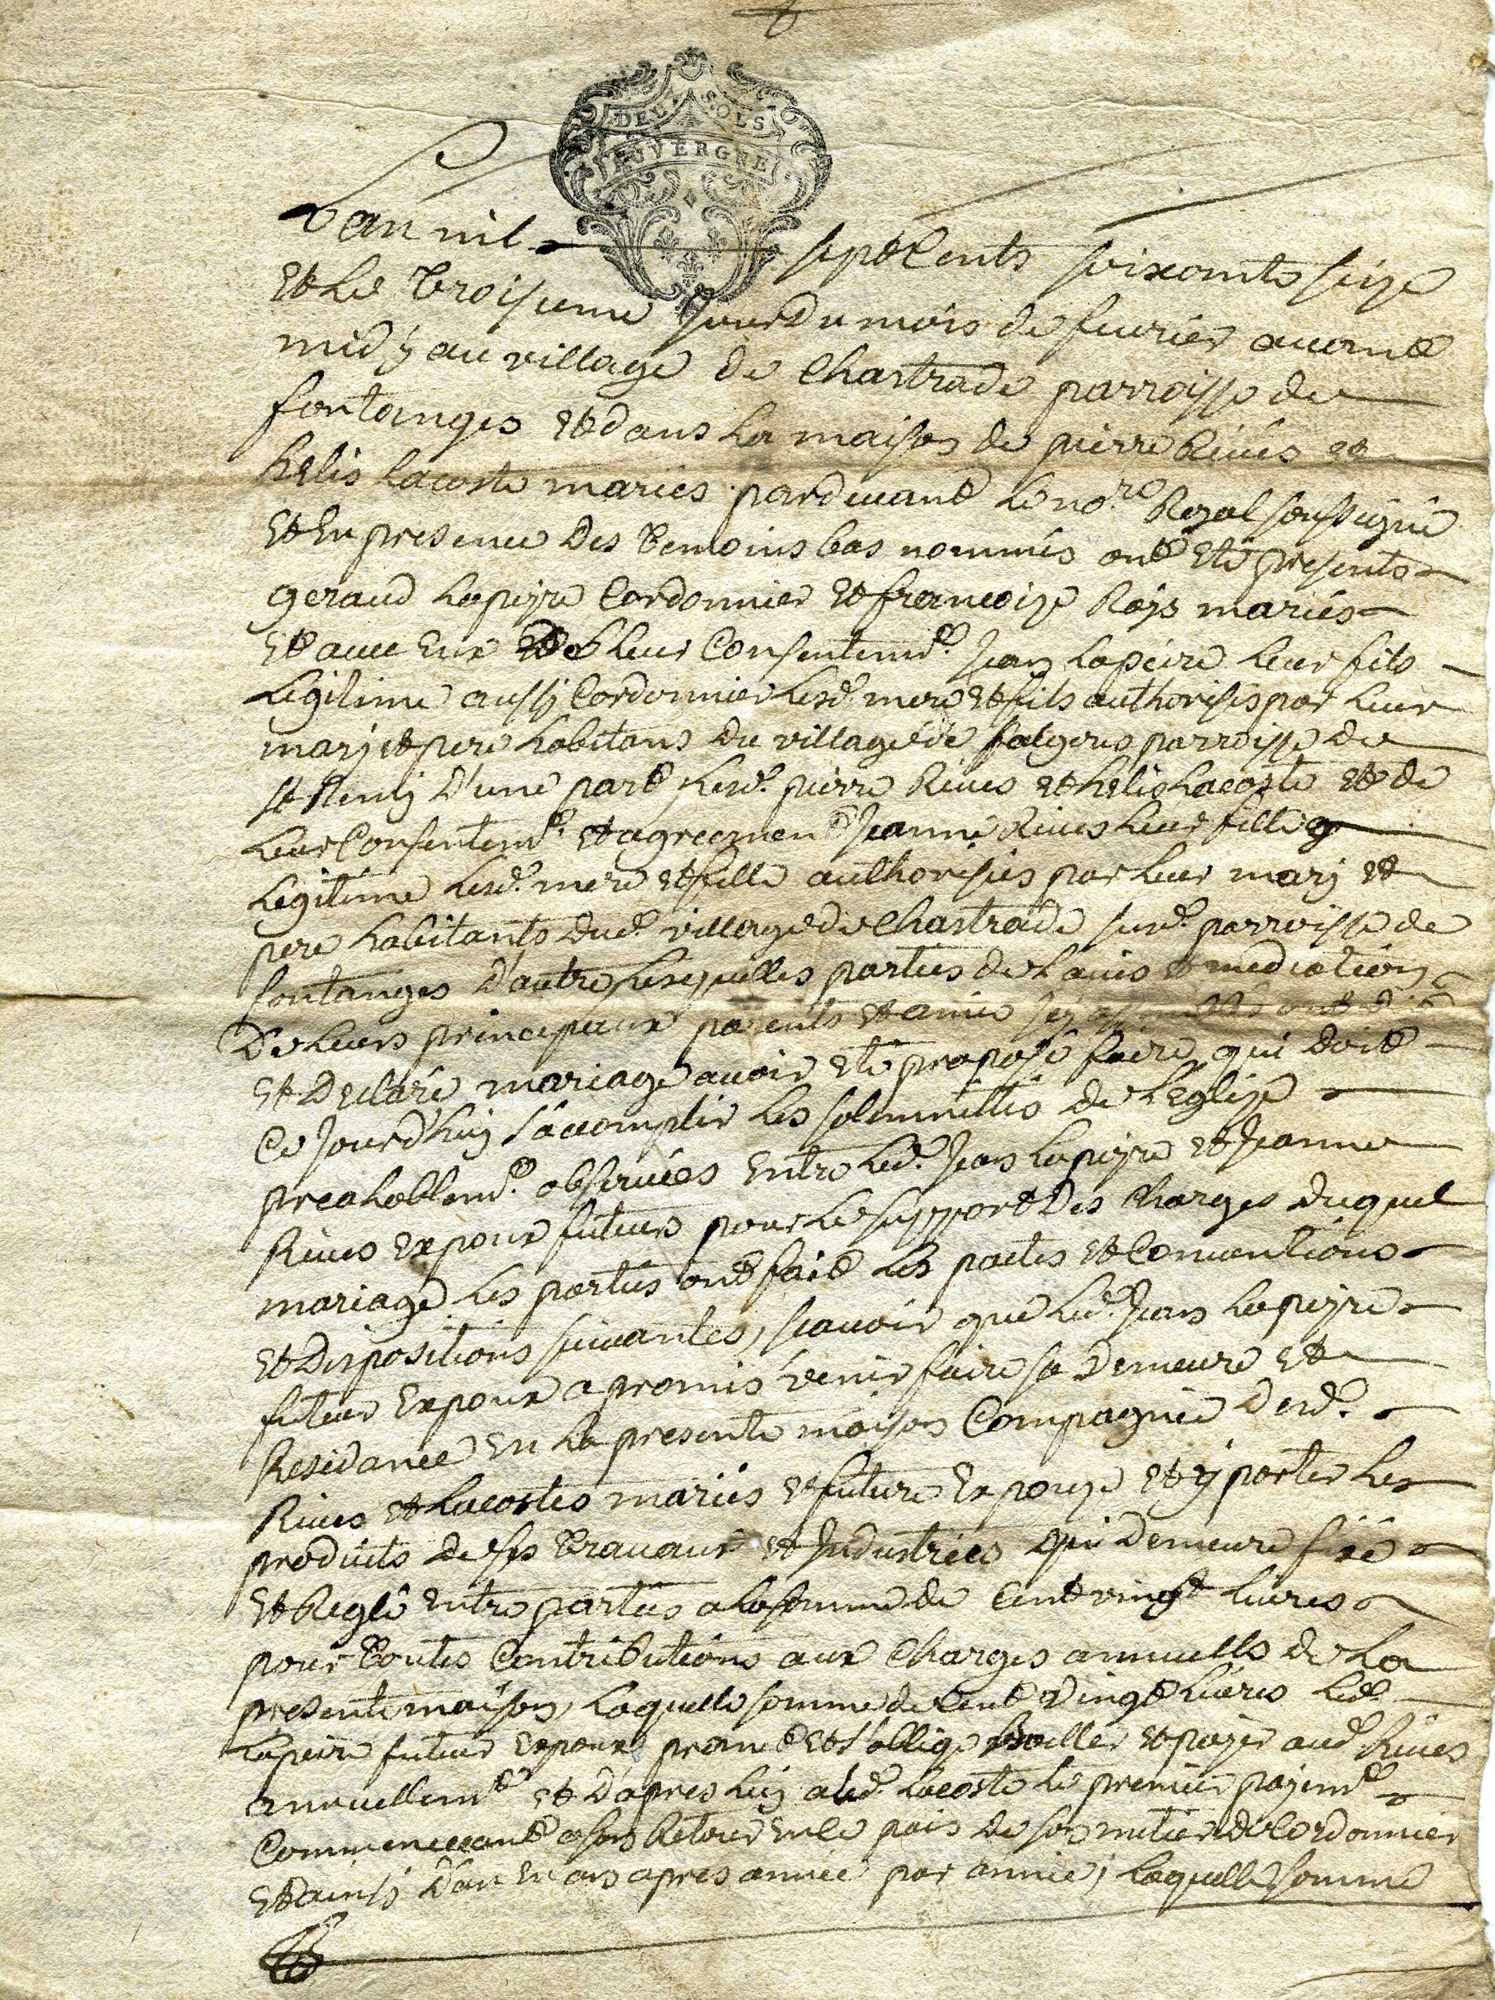 DEUX SOLS
AUVERGNE
L'an mil sept Cents soixante seize
Et Le Troisieme Jour du mois de fevrier avant
midy au village de Chastrade parroisse de
fontanges Et dans La maison de pierre Rives et
helis Lacoste mariés pardevant Le no.re Royal soussigné
Et En presence Des Temoins bas nommés ont Eté presents
geraud Lapeyre Cordonnier Et francoize Reys mariés
Et avec Eux Et de Leur Consentem.t Jean Lapeire Leur fils
Legitime aussy Cordonnier Lesd. mere et fils authorisés par Leur
mary et pere habitans Du village de falgous parroisse De
st Remy D'une part Lesd. pierre Rives et helis Lacoste et de
Leur Consentem.t Et agreement Jeanne Rives Leur fille
Legitime Lesd. mere et fille authorisées par Leur mary et
pere habitants dud. village de Chastrade susd. parroisse de
fontanges D'autre Lesquelles parties de L'avis et mediation
De Leurs principeaux parents et amis ont dit
Et Declaré mariage avoir Eté proposé faire qui doit
Ce Jourd'huy s'accomplir Les solemnittés de L'Eglize
prealablem.t observées Entre Led. Jean Lapeyre et Jeanne
Rives Expoux futurs pour Le support Des Charges duquel
mariage Les parties ont fait Les pactes et Conventions
Et Dispositions suivantes, scavoir que Led. Jean Lapeyre
futeur Expoux a promis venir faire sa Demeure et
Residance En La presente maison Compagnie Desd.
Rives et Lacoste mariés et future Expouze et y porter Les
produits de ses Travaux et Industries qui Demeure fixé
Et Reglé Entre parties a La somme de Cent vingt Livres
pour Toutes Contributions aux Charges annuells de La
presente maison, Laquelle somme de Cent vingt Livres Led.
Lapeire futeur Expoux promet et s'oblige Bailler et payer aud. Rives
annuellem.t et D'apres Luy a Lad. Lacoste Le premier payem.t
Commenceant a son Retour En Ce pais De son metier de Cordonnier
Et ainsy D'an En an apres année par année, Laquelle somme